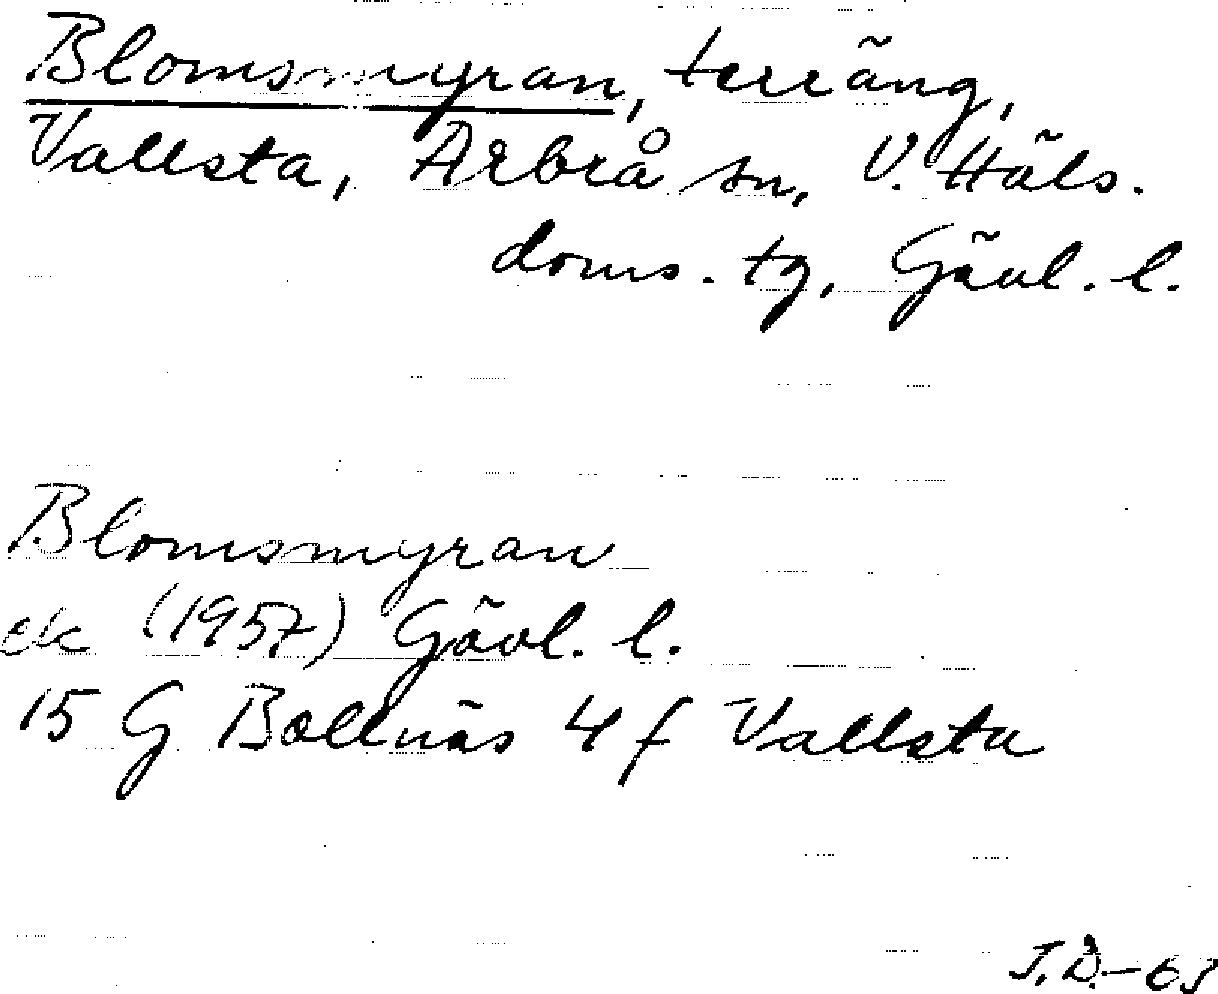 Blomsmyran, terräng,
Vallsta, Arbrå sn, V. Häls.
doms. tg, Gävl. l.
Blomsmyran
ek (1957) Gävl. l.
15 G Bollnäs 4 f Vallsta
J.D.-63